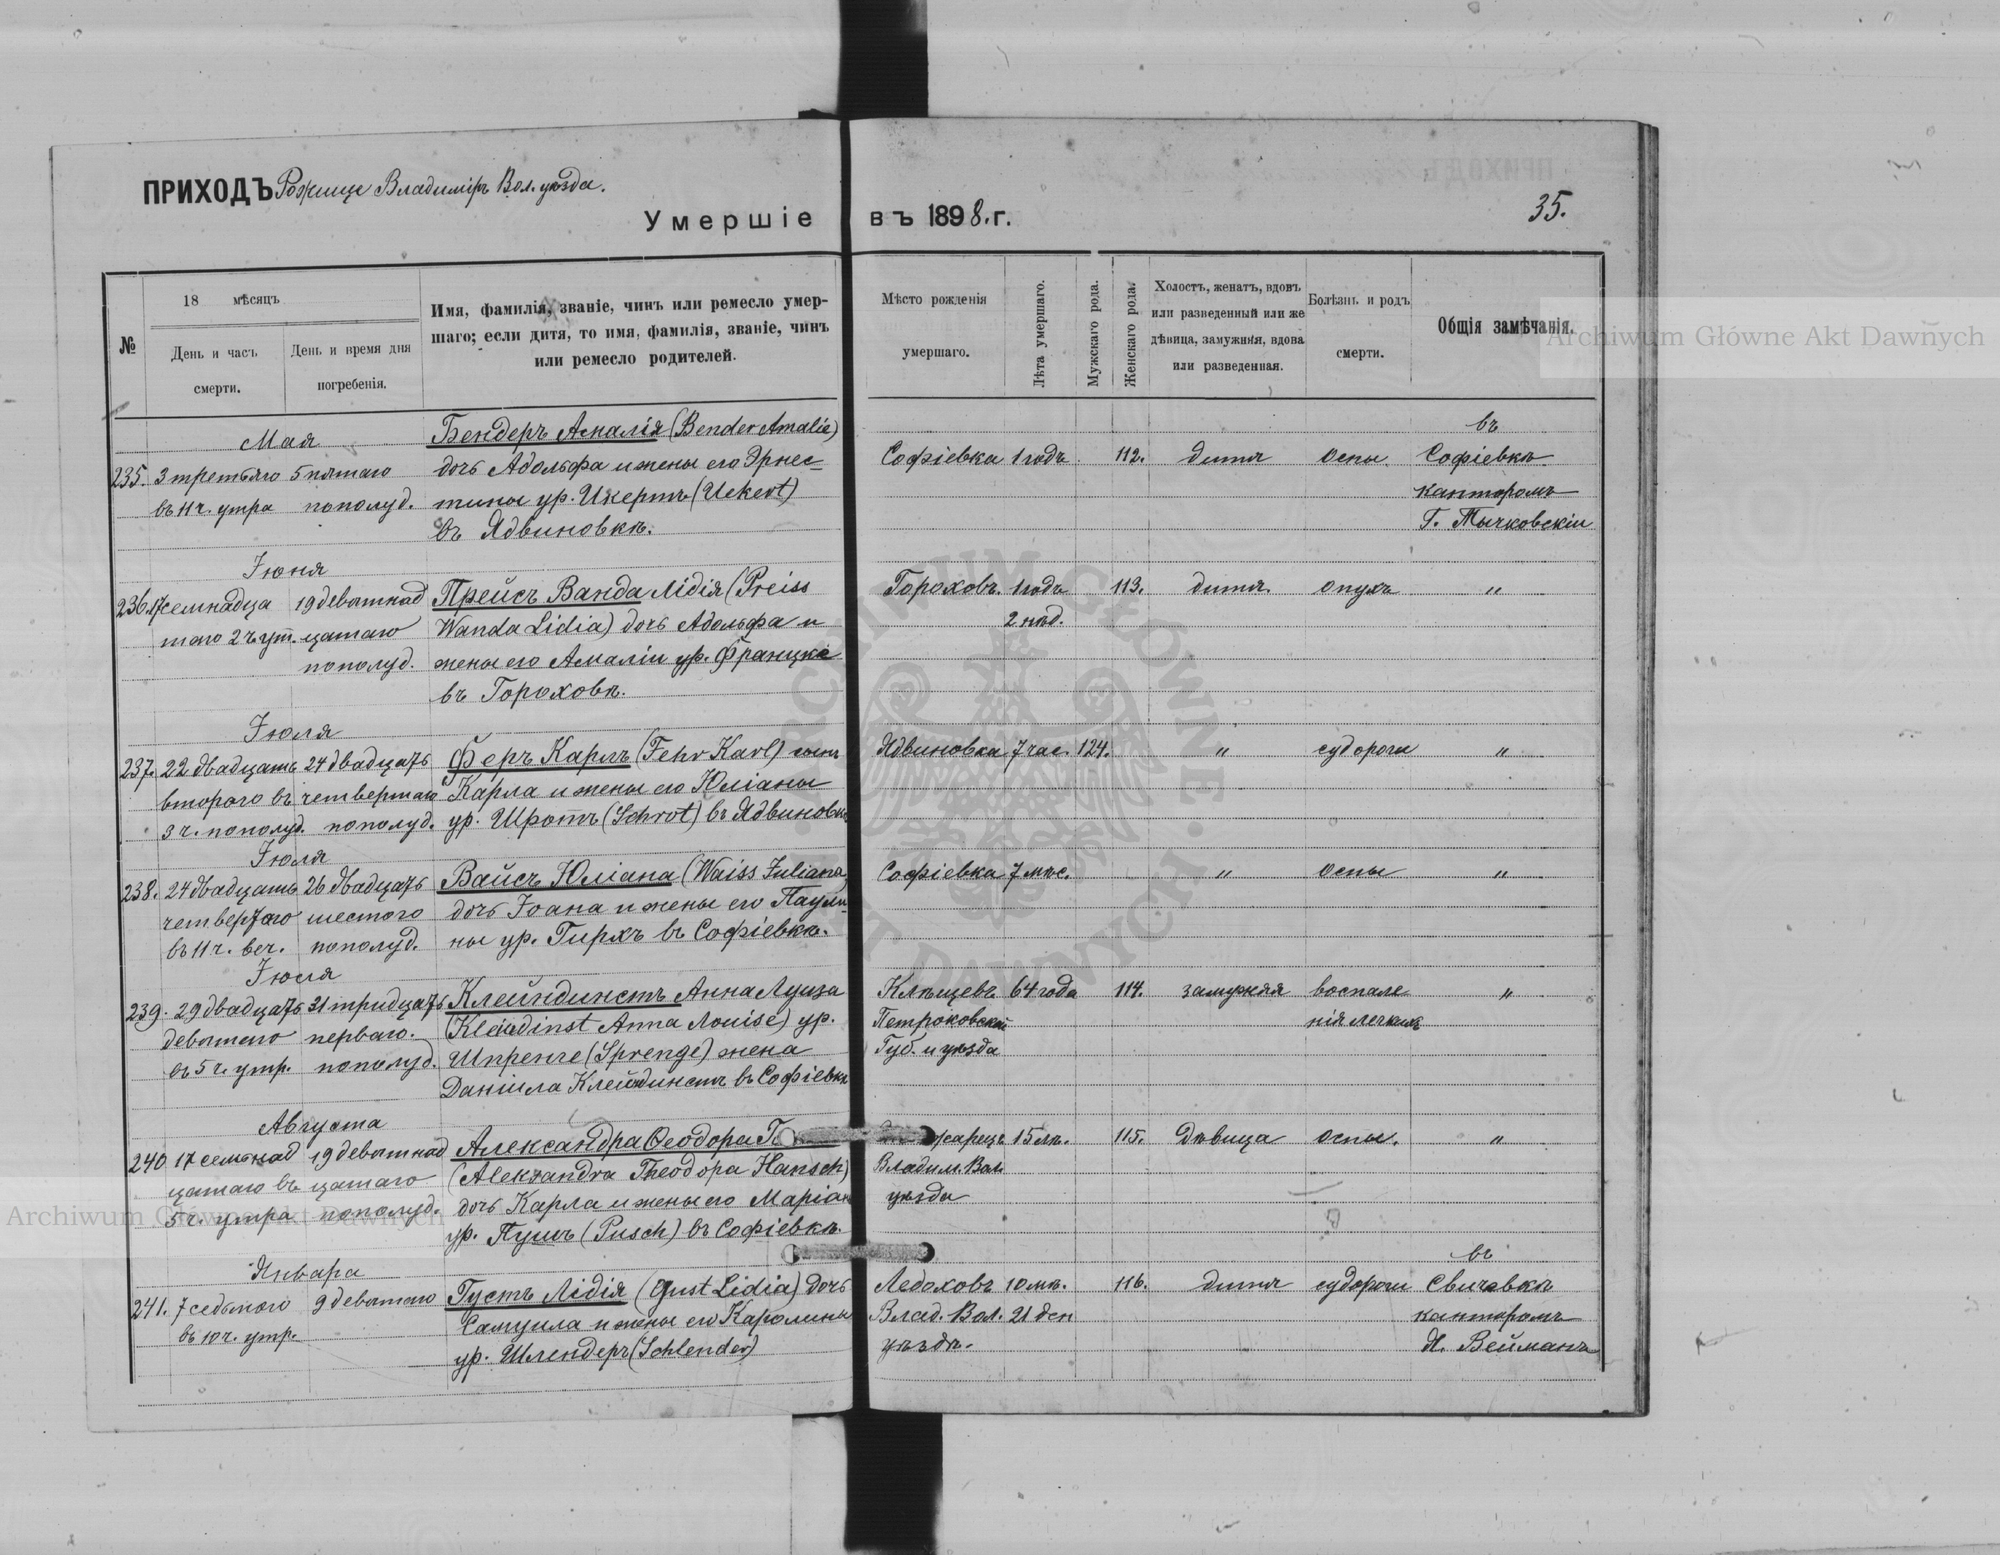 ПРИХОДЪ Рожище Владимiръ Вол. уѣзда.
Умершіе въ 1898. г.
35.
№
18 мѣсяцъ
День и часъ смерти.
День и время дня погребенія.
Имя, фамилія, званіе, чинъ или ремесло умер-
шаго; если дитя, то имя, фамилія, званіе, чинъ
или ремесло родителей.
Мѣсто рожденія
умершаго.
Лѣта умершаго.
Мужскаго рода.
Женскаго рода.
Холостъ, женатъ, вдовъ
или разведенный или же
дѣвица, замужняя, вдова
или разведенная.
Болѣзнь и родъ
смерти.
Общія замѣчанія.
Archiwum Główne Akt Dawnych
Мая Бендеръ Амалія (Bender Amalie) въ
235. 3 третьяго 5 пятаго дочь Адольфа и жены его Эрнес- Софіевка 1 годъ 112. дитя оспы. Софіевкѣ
въ 11 ч. утра пополуд. тины ур. Икертъ (Uckert) канторомъ
въ Ядвиновкѣ. Г. Тычковскiи
Іюня
236. 17 семнадца 19 девятнад Прейсъ Ванда Лідія (Preiss Гороховъ. 1 годъ 113. дитя опухъ "
таго 2 ч. ут. цатаго Wanda Lidia) дочь Адольфа и 2 нѣд.
пополуд. жены его Амаліи ур. Францке
въ Гороховѣ.
Іюля
237. 22 двадцать 24 двадцать Феръ Карлъ (Fehr Karl) сынъ Ядвиновка 7 час. 124. " судороги "
втораго въ четвертаго Карла и жены его Юліаны
3 ч. пополуд. пополуд. ур. Шротъ (Schrot) въ Ядвиновкѣ
Іюля
238. 24 двадцать 26 двадцать Вайсъ Юліана (Waiss Juliana) Софіевка 7 мѣс. " оспы "
четвертаго шестого дочь Іоана и жены его Паули-
въ 11 ч. веч. пополуд. ны ур. Гирхъ въ Софіевкѣ.
Іюля
239. 29 двадцать 31 тридцать Клейндинстъ Анна Луиза Клѣщевъ 64 года 114. замужняя воспале "
девятаго перваго. (Kleindinst Anna Louise) ур. Петроковской нія легкихъ
въ 5 ч. утр. пополуд. Шпренге (Sprenge) жена Губ. и уѣзда
Даніила Клейндинстъ въ Софіевкѣ
Августа
240. 17 семнад 19 девятнад Александра Ѳеодора 15 лѣ. 115. дѣвица оспы. "
цатаго въ цатаго (Aleksandra Theodora Hansch) Владим. Вол.
5 ч. утра пополуд. дочь Карла и жены его Маріан уѣзда
ур. Пушъ (Pusch) въ Софіевкѣ.
Января въ
241. 7 седьмого 9 девятаго Густъ Лідія (Gust Lidia) дочь Ледоховъ 10 мѣ. 116. дитя судороги Свичевкѣ
въ 10 ч. утр. Самуила и жены его Каролины Влад. Вол. 21 ден канторомъ
ур. Шлендеръ (Schlender) уѣздѣ. Я. Вейманъ
Archiwum Główne Akt Dawnych
ARCHIWUM GŁÓWNE AKT DAWNYCH